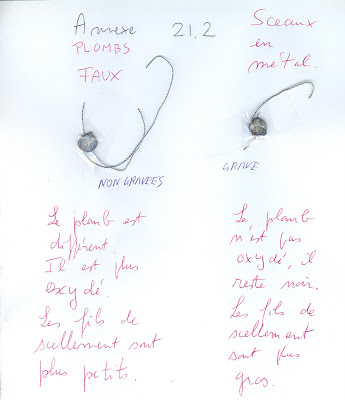 Annexe 21.2
PLOMBS
FAUX
Sceaux
en
métal.
NON GRAVEES
GRAVE
Le plomb est
différent.
Il est plus
oxydé.
Les fils de
scellement sont
plus petits.
Le plomb
n'est pas
oxydé, il
reste noir.
Les fils de
scellement
sont plus
gros.